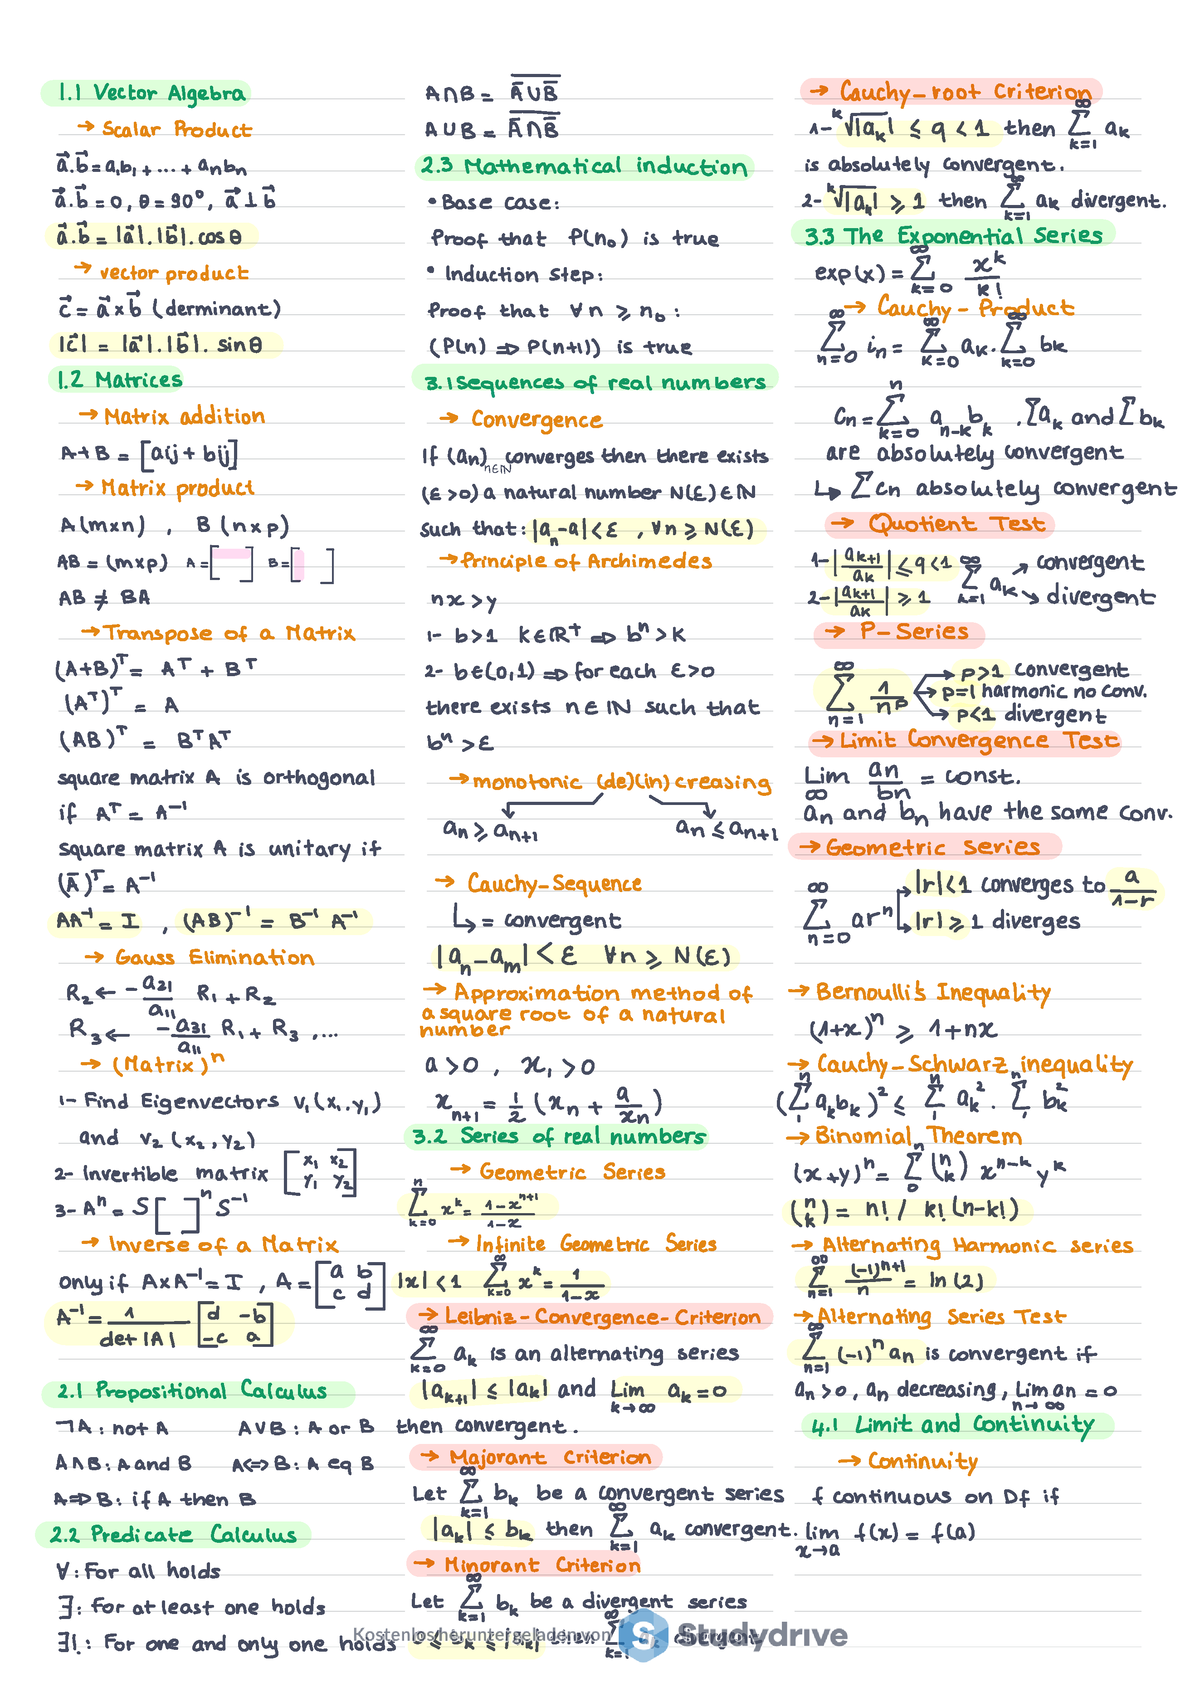 1.1 Vector Algebra
→ Scalar Product
a⃗.b⃗ = a₁b₁ + ... + aₙbₙ
a⃗.b⃗ = 0, θ = 90°, a⃗ ⊥ b⃗
a⃗.b⃗ = |a⃗|.|b⃗|.cos θ
→ vector product
c⃗ = a⃗ x b⃗ (derminant)
|c⃗| = |a⃗|.|b⃗|. sin θ
1.2 Matrices
→ Matrix addition
A+B = [aij + bij]
→ Matrix product
A(mxn) , B (nxp)
AB = (mxp) A = [ ] B = [ ]
AB ≠ BA
→ Transpose of a Matrix
(A+B)ᵀ = Aᵀ + Bᵀ
(Aᵀ)ᵀ = A
(AB)ᵀ = BᵀAᵀ
square matrix A is orthogonal
if Aᵀ = A⁻¹
square matrix A is unitary if
(Ā)ᵀ = A⁻¹
AA⁻¹ = I , (AB)⁻¹ = B⁻¹ A⁻¹
→ Gauss Elimination
R₂ ← -a₂₁/a₁₁ R₁ + R₂
R₃ ← -a₃₁/a₁₁ R₁ + R₃ ,...
→ (Matrix)ⁿ
1- Find Eigenvectors v₁(x₁.y₁)
and v₂ (x₂,y₂)
2- Invertible matrix [x₁ x₂ y₁ y₂]
3- Aⁿ = S [ ]ⁿ S⁻¹
→ Inverse of a Matrix
only if AxA⁻¹ = I , A = [a b c d]
A⁻¹ = 1/det|A| [d -b -c a]
2.1 Propositional Calculus
¬A : not A A∨B : A or B
A∧B : A and B A⇔B : A eq B
A⇒B : if A then B
2.2 Predicate Calculus
∀ : For all holds
∃ : For at least one holds
∃! : For one and only one holds
A∩B = \overline{Ā∪B̄}
A∪B = \overline{Ā∩B̄}
2.3 Mathematical induction
• Base case:
Proof that P(n₀) is true
• Induction step:
Proof that ∀n ≥ n₀ :
(P(n) ⇒ P(n+1)) is true
3.1 Sequences of real numbers
→ Convergence
If (aₙ)n∈ℕ converges then there exists
(ε>0) a natural number N(ε)∈ℕ
such that: |aₙ-a| < ε , ∀n ≥ N(ε)
→ Principle of Archimedes
nx > y
1- b>1 K∈ℝ⁺ ⇒ bⁿ > K
2- b∈(0,1) ⇒ for each ε>0
there exists n∈ℕ such that
bⁿ > ε
→ monotonic (de)(in)creasing
aₙ ≥ aₙ₊₁ aₙ ≤ aₙ₊₁
→ Cauchy-Sequence
↳ = convergent
|aₙ-aₘ| < ε ∀n ≥ N(ε)
→ Approximation method of
a square root of a natural
number
a > 0 , x₁ > 0
xₙ₊₁ = 1/2 (xₙ + a/xₙ)
3.2 Series of real numbers
→ Geometric Series
∑ₖ₌₀ⁿ xᵏ = 1-xⁿ⁺¹/1-x
→ Infinite Geometric Series
|x| < 1 ∑ₖ₌₀^∞ xᵏ = 1/1-x
→ Leibniz-Convergence-Criterion
∑ₖ₌₀^∞ aₖ is an alternating series
|aₖ₊₁| ≤ |aₖ| and Lim k→∞ aₖ = 0
then convergent.
→ Majorant Criterion
Let ∑ₖ₌₁^∞ bₖ be a convergent series
|aₖ| ≤ bₖ then ∑ₖ₌₁^∞ aₖ convergent.
→ Minorant Criterion
Let ∑ₖ₌₁^∞ bₖ be a divergent series
→ Cauchy-root Criterion
1- ᵏ√|aₖ| ≤ q < 1 then ∑ₖ₌₁^∞ aₖ
is absolutely convergent.
2- ᵏ√|aₖ| ≥ 1 then ∑ₖ₌₁^∞ aₖ divergent.
3.3 The Exponential Series
exp(x) = ∑ₖ₌₀^∞ xᵏ/k!
→ Cauchy-Product
∑ₙ₌₀^∞ iₙ = ∑ₖ₌₀^∞ aₖ . ∑ₖ₌₀^∞ bₖ
Cₙ = ∑ₖ₌₀ⁿ aₙ₋ₖ bₖ . ∑aₖ and ∑bₖ
are absolutely convergent
↳ ∑cₙ absolutely convergent
→ Quotient Test
1- |aₖ₊₁/aₖ| ≤ q < 1 ∑ₖ₌₁^∞ aₖ ↗ convergent
2- |aₖ₊₁/aₖ| ≥ 1 ↘ divergent
→ P-Series
∑ₙ₌₁^∞ 1/nᵖ → p>1 convergent
→ p=1 harmonic no conv.
→ p<1 divergent
→ Limit Convergence Test
Lim ∞ an/bn = const.
aₙ and bₙ have the same conv.
→ Geometric Series
∑ₙ₌₀^∞ arⁿ → |r|<1 converges to a/1-r
→ |r| ≥ 1 diverges
→ Bernoulli's Inequality
(1+x)ⁿ ≥ 1+nx
→ Cauchy-Schwarz inequality
(∑₁ⁿ aₖbₖ)² ≤ ∑₁ⁿ aₖ² . ∑₁ⁿ bₖ²
→ Binomial Theorem
(x+y)ⁿ = ∑₀ⁿ (n k) xⁿ⁻ᵏ yᵏ
(n k) = n! / k!(n-k!)
→ Alternating Harmonic series
∑ₙ₌₁^∞ (-1)ⁿ⁺¹/n = ln(2)
→ Alternating Series Test
∑ₙ₌₁^∞ (-1)ⁿ aₙ is convergent if
aₙ>0, aₙ decreasing, Lim n→∞ an = 0
4.1 Limit and Continuity
→ Continuity
f continuous on Df if
lim x→a f(x) = f(a)
Kostenlos heruntergeladen von
Studydrive